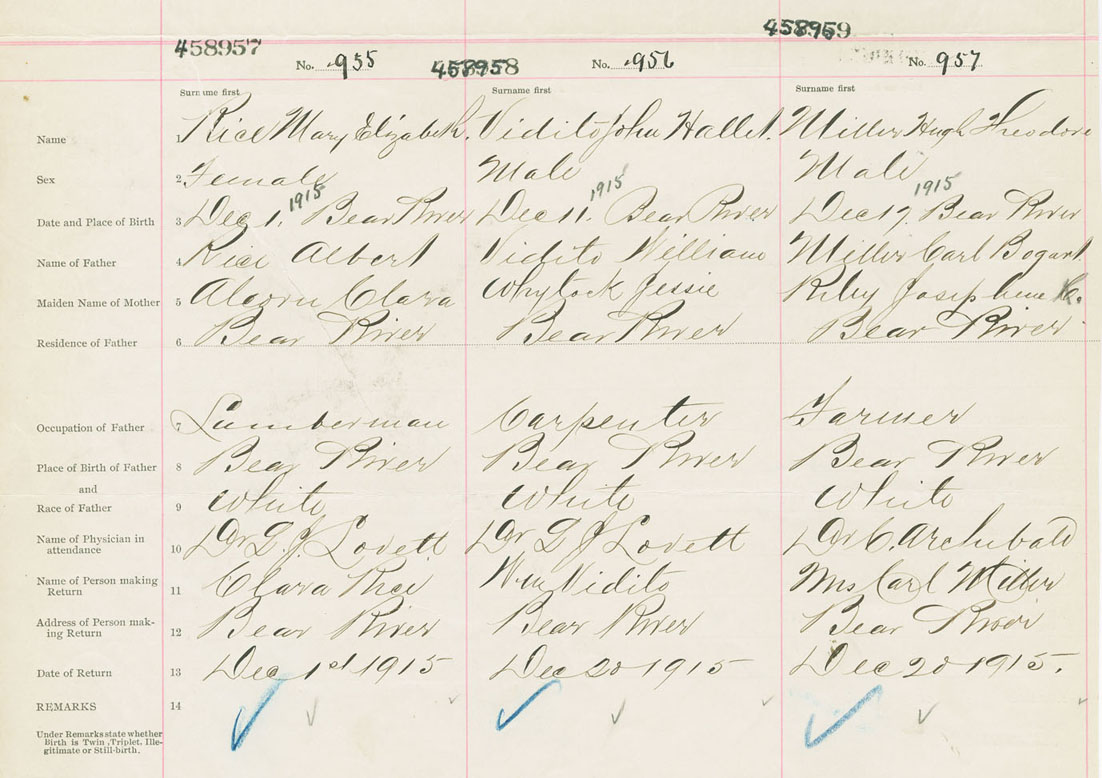 458957 458958 458959
No. 955 No. 956 No. 957
Surname first Surname first Surname first
Name 1 Rice Mary Elizabeth. Vidito John Hallet. Miller Hugh Theodore
Sex 2 Female Male Male
1915 1915 1915
Date and Place of Birth 3 Dec 1, Bear River Dec 11, Bear River Dec 17, Bear River
Name of Father 4 Rice Albert Vidito William Miller Carl Bogart
Maiden Name of Mother 5 Alcorn Clara Whytock Jessie Riley Josephine K.
Residence of Father 6 Bear River Bear River Bear River
Occupation of Father 7 Lumberman Carpenter Farmer
Place of Birth of Father 8 Bear River Bear River Bear River
and
Race of Father 9 White White White
Name of Physician in
attendance 10 Dr L. J. Lovett Dr L J Lovett Dr C. Archibald
Name of Person making
Return 11 Clara Rice Wm Vidito Mrs Carl Miller
Address of Person mak-
ing Return 12 Bear River Bear River Bear River
Date of Return 13 Dec 1st 1915 Dec 20 1915 Dec 20 1915.
REMARKS 14
Under Remarks state whether
Birth is Twin, Triplet, Ille-
gitimate or Still-birth.